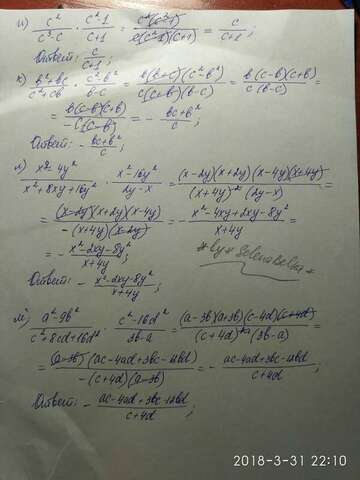 и) c²/(c³-c) · (c²-1)/(c+1) = c²(c²-1)/(c(c²-1)(c+1)) = c/(c+1);
Ответ: c/(c+1);
к) (b²+bc)/(c²+cb) · (c²-b²)/(b-c) = b(b+c)(c²-b²)/(c(c+b)(b-c)) = b(c-b)(c+b)/(c(b-c)) =
= b(c-b)(c+b)/(-c(c-b)) = - (bc+b²)/c;
Ответ: - (bc+b²)/c;
л) (x²-4y²)/(x²+8xy+16y²) · (x²-16y²)/(2y-x) = (x-2y)(x+2y)(x-4y)(x+4y)/((x+4y)²(2y-x)) =
= (x-2y)(x+2y)(x-4y)/(-(x+4y)(x-2y)) = - (x²-4xy+2xy-8y²)/(x+4y) =
= - (x²-2xy-8y²)/(x+4y);
*by*SelenaBelka*
Ответ: - (x²-2xy-8y²)/(x+4y);
м) (a²-9b²)/(c²+8cd+16d²) · (c²-16d²)/(3b-a) = (a-3b)(a+3b)(c-4d)(c+4d)/((c+4d)²(3b-a)) =
= (a-3b)(ac-4ad+3bc-12bd)/(-(c+4d)(a-3b)) = - (ac-4ad+3bc-12bd)/(c+4d);
Ответ: - (ac-4ad+3bc-12bd)/(c+4d);
2018-3-31 22:10